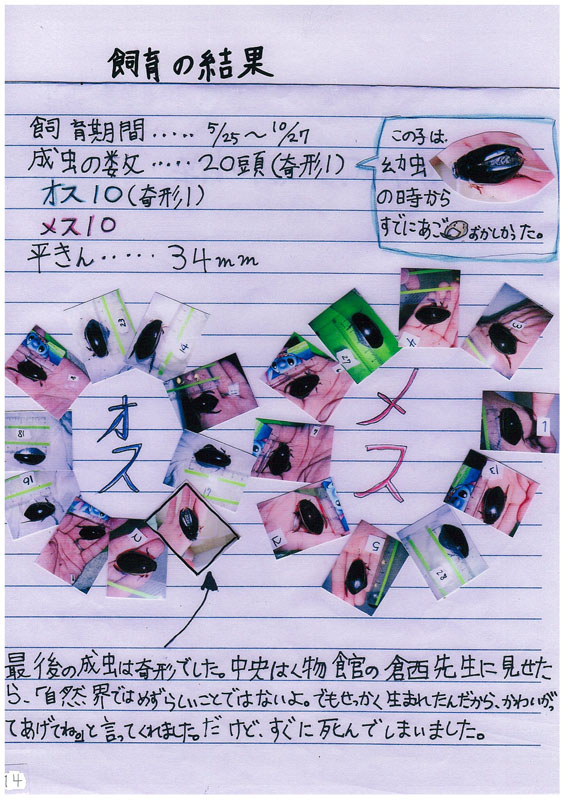 飼育の結果
飼育期間‥‥‥ 5/25～10/27
成虫の数‥‥‥20頭(奇形1)
オス10(奇形1)
メス10
平きん‥‥‥34mm
この子は、
幼虫
の時から
すでにあごおかしかった。
オス
メス
最後の成虫は奇形でした。中央はく物館の倉西先生に見せた
ら、「自然界ではめずらしいことではないよ。でもせっかく生まれたんだから、かわいがっ
てあげてね。」と言ってくれました。だけど、すぐに死んでしまいました。
23
14
18
16
2
27
3
1
13
28
5
14